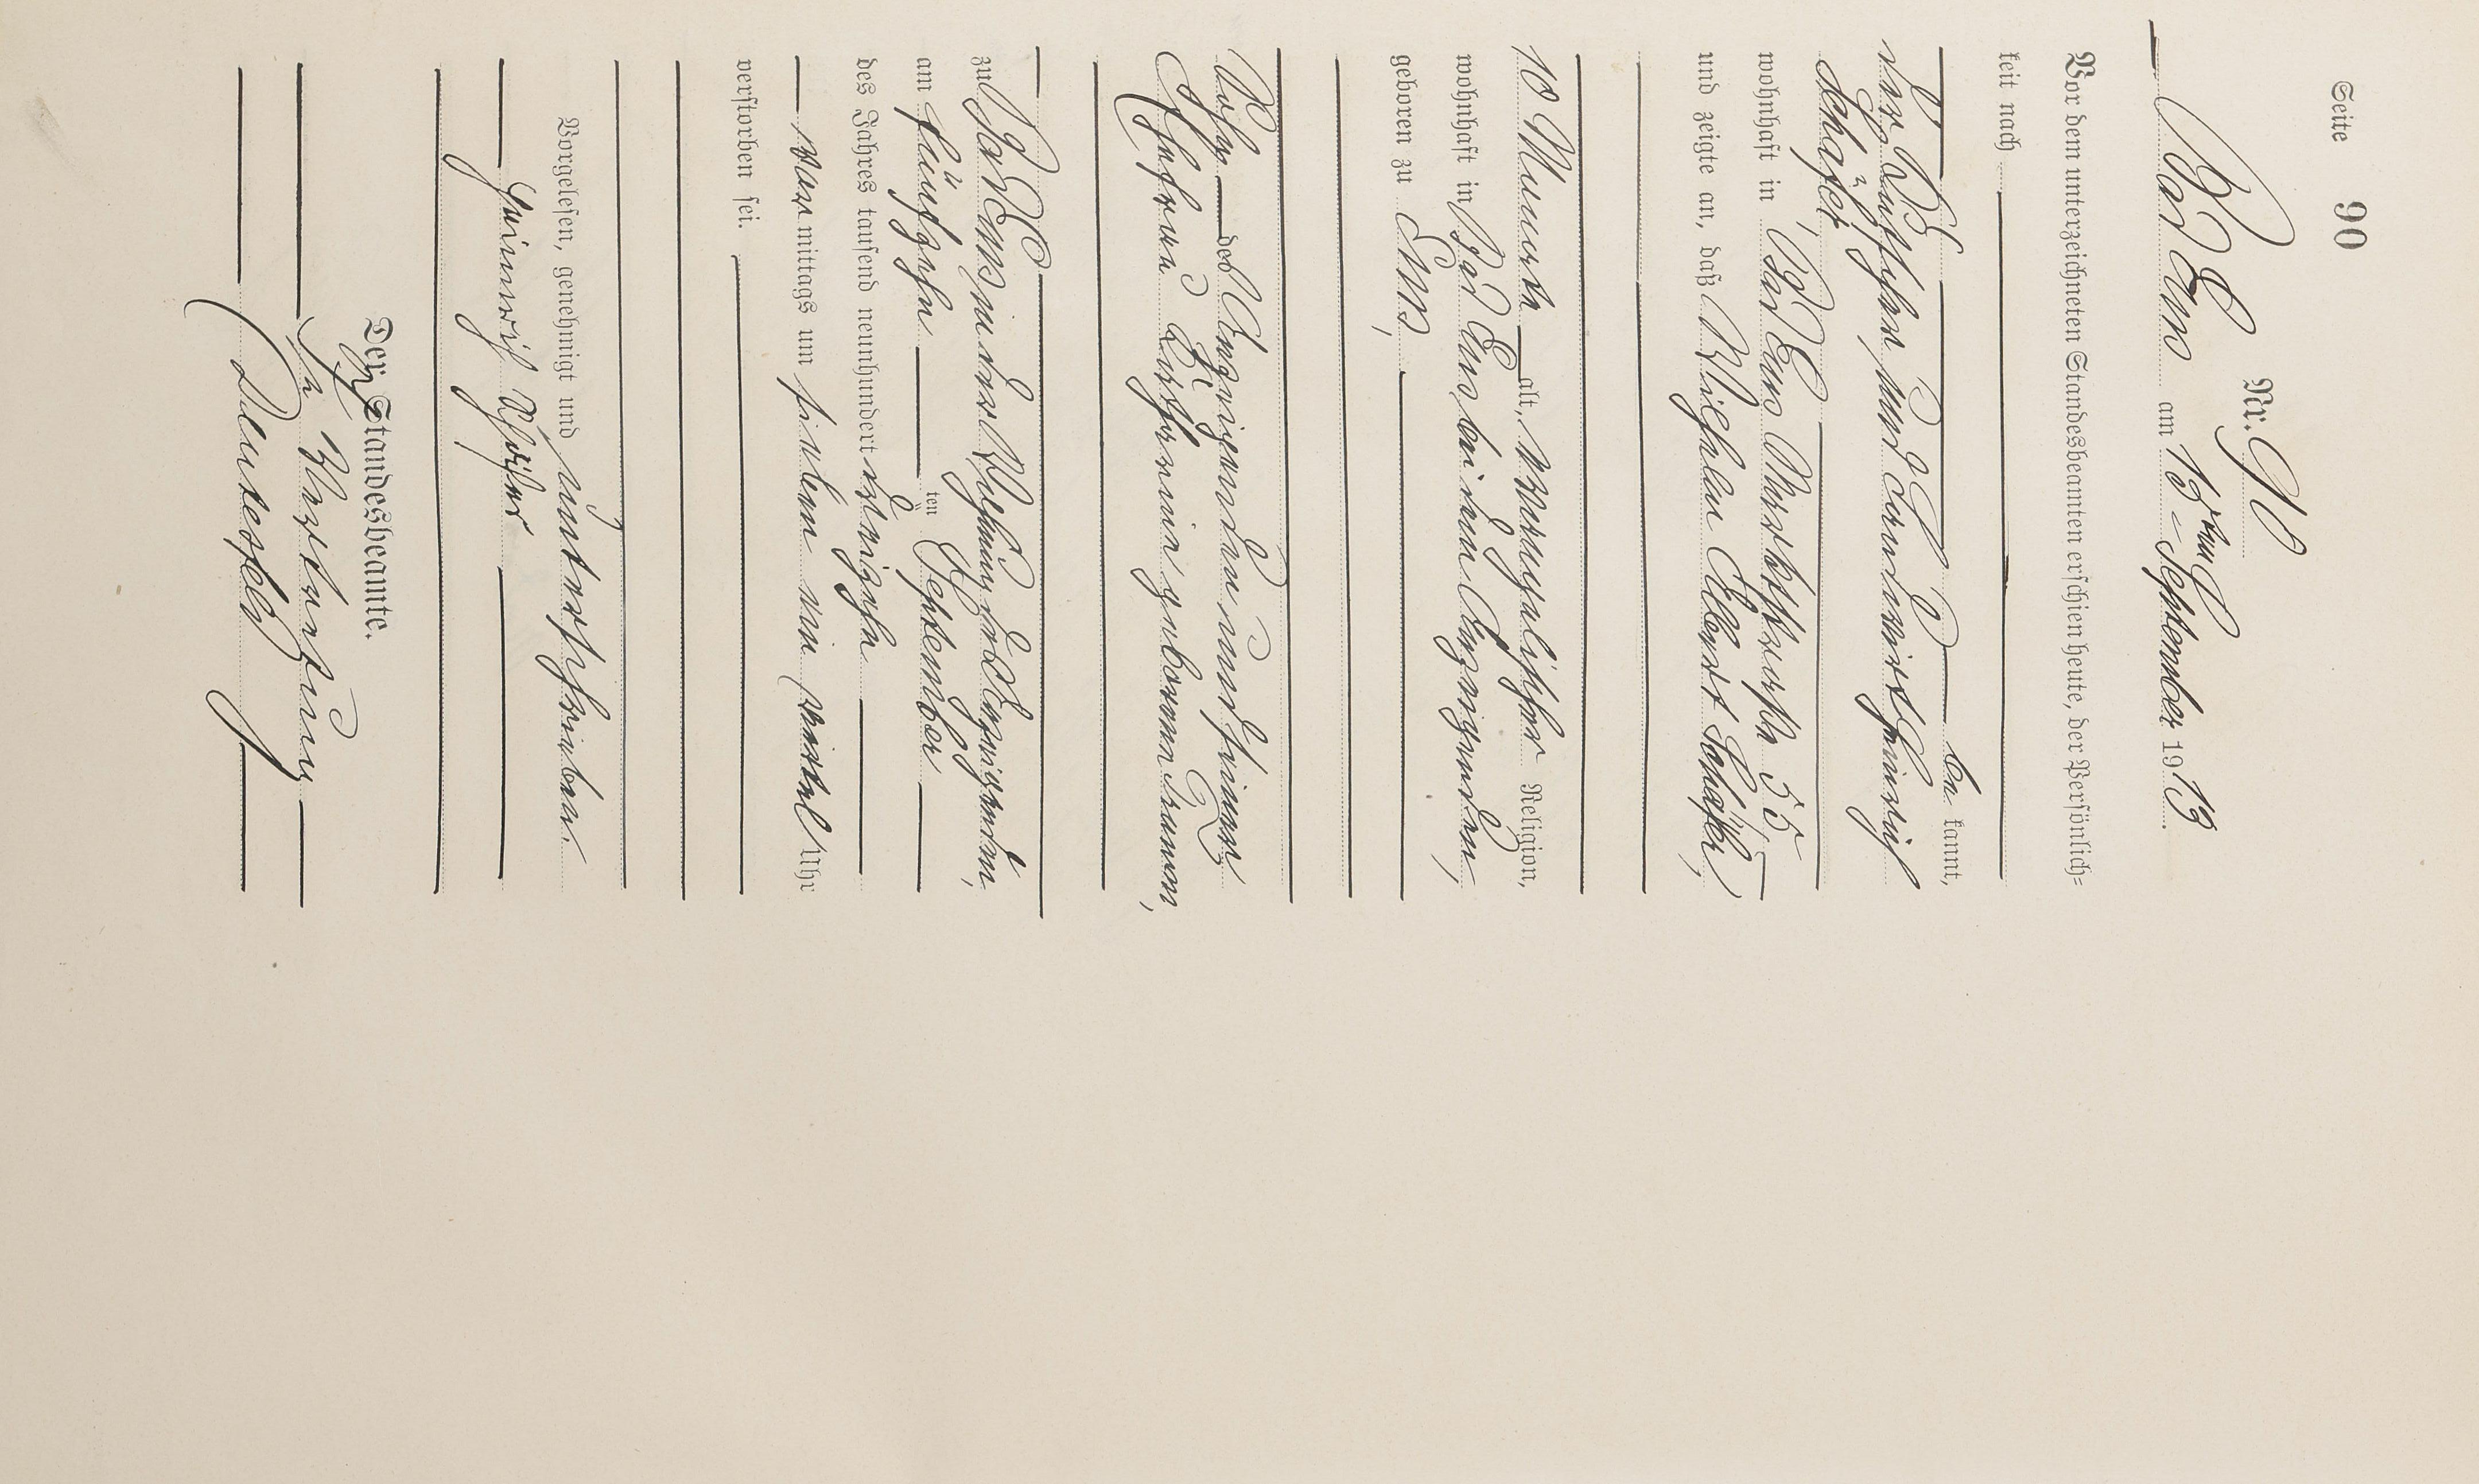 Seite 90
Nr. 90
Bad Ems am 15ten September 1913
Vor dem unterzeichneten Standesbeamten erschien heute, der Persönlich=
keit nach
be kannt,
der Kutscher und Landwirt Heinrich
Schäfer,
wohnhaft in Bad Ems Marktstraße 55
und zeigte an, daß Wilhelm Albert Schäfer,
10 Monate alt, evangelischer Religion,
wohnhaft in Bad Ems bei dem Anzeigenden,
geboren zu Ems,
Sohn des Anzeigenden und seiner
Ehefrau Katharine geborenen
zu Bad Ems in der Wohnung des Anzeigenden,
am fünfzehn ten September
des Jahres tausend neunhundert dreizehn
vor mittags um sieben ein viertel Uhr
verstorben sei.
Vorgelesen, genehmigt und unterschrieben.
Heinrich Schäfer
Der Standesbeamte.
In Vertretung